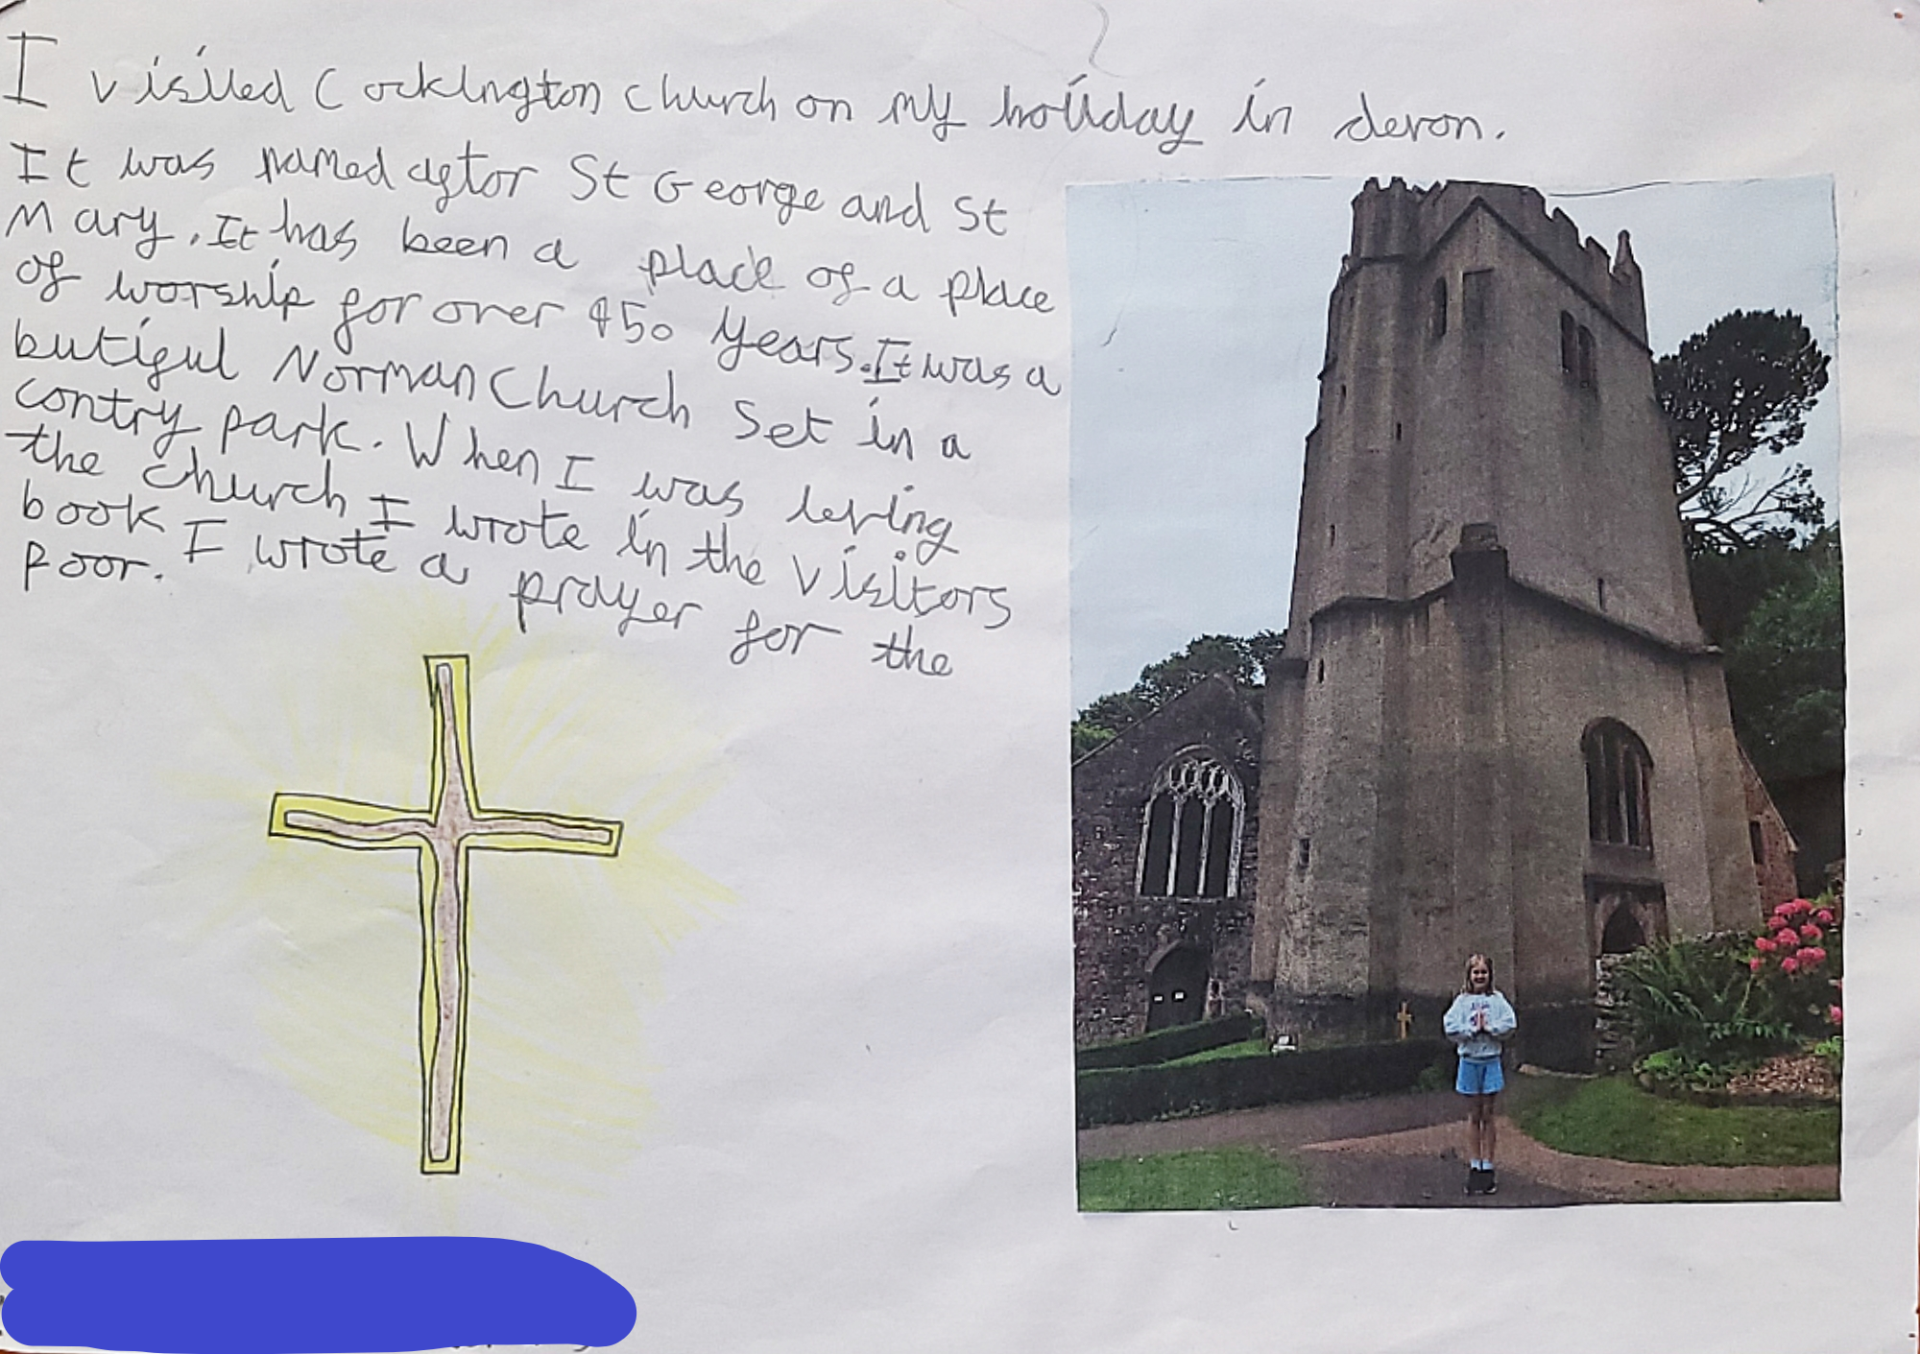 I visited Cockington church on my holiday in devon.
It was named aftor St George and St
Mary. It has been a place of a place
of worship for over 950 years. It was a
butiful Norman Church set in a
contry park. When I was leving
the church I wrote in the visitors
book I wrote a prayer for the
poor.